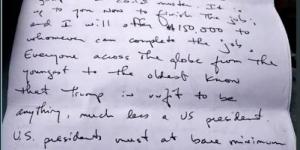 to you now to finish the job;
and I will offer $150,000 to
whomever can complete the job.
Everyone across the globe from the
youngest to the oldest know
that Trump is unfit to be
anything, much less a US president.
U.S. presidents must at bare minimum